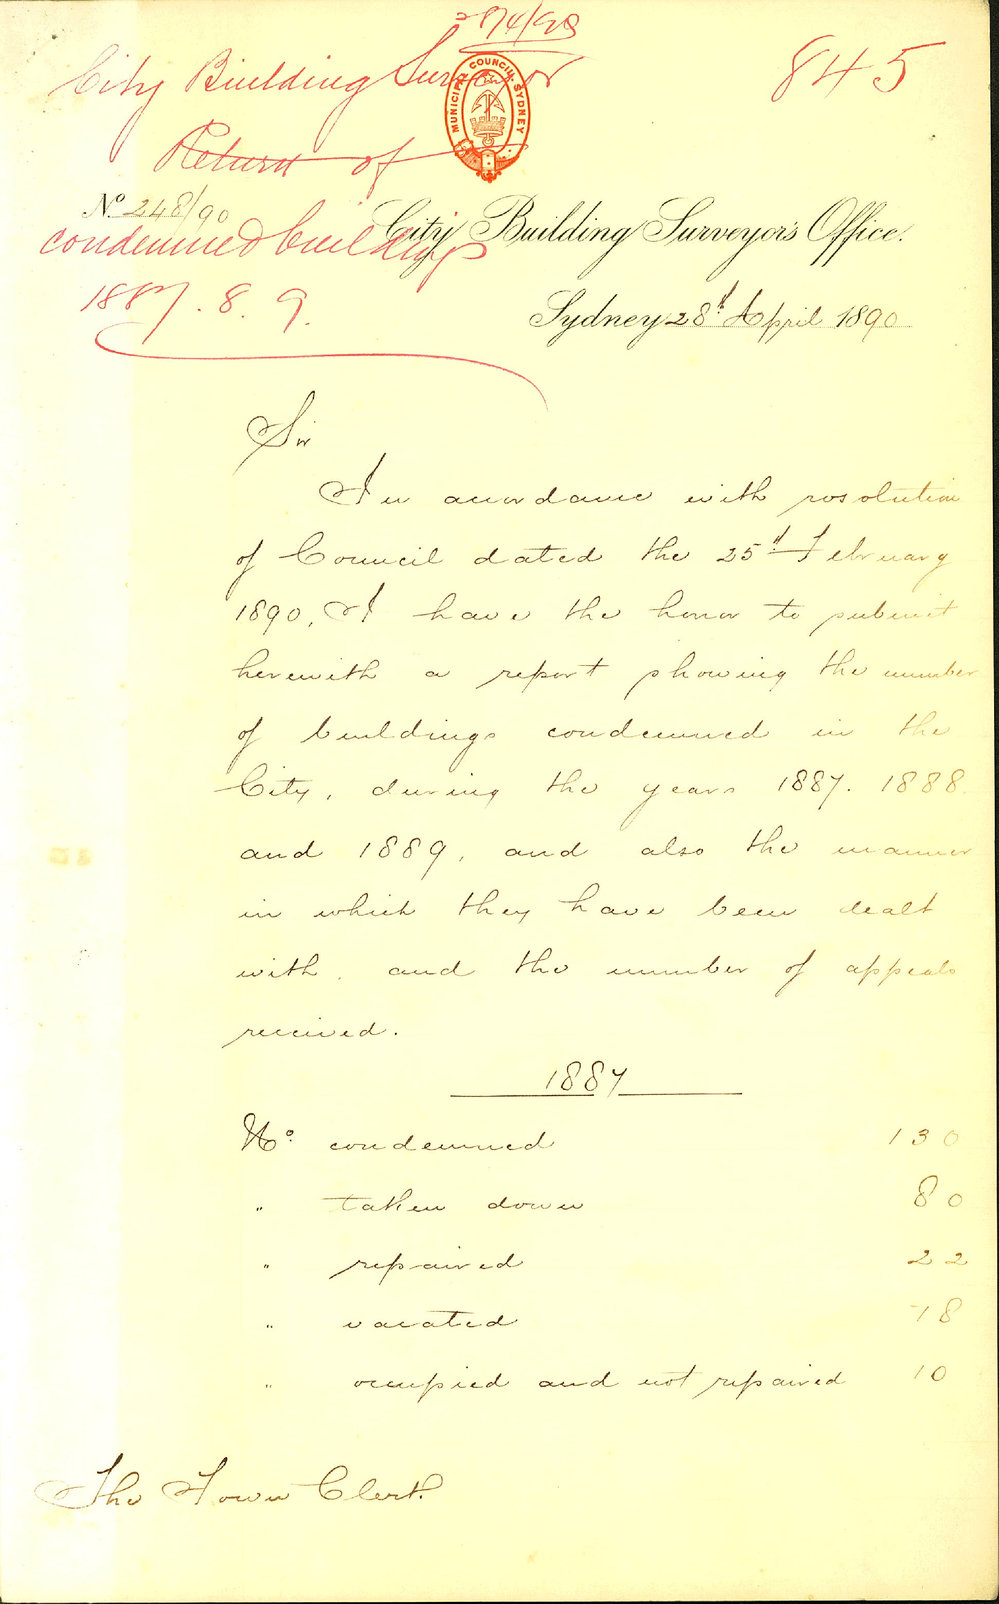 28/4/90
City Building Surveyor
845
MUNICIPAL COUNCIL SYDNEY
Return of
No 248/90
City Building Surveyor's Office.
condemned buildings
1887. 8. 9.
Sydney 28th April 1890
Sir
In accordance with resolution
of Council dated the 25th February
1890, I have the honor to submit
herewith a report showing the number
of buildings condemned in the
City, during the years 1887. 1888
and 1889, and also the manner
in which they have been dealt
with, and the number of appeals
received.
1887
No. condemned 130
" taken down 80
" repaired 22
" vacated 18
" occupied and not repaired 10
The Town Clerk